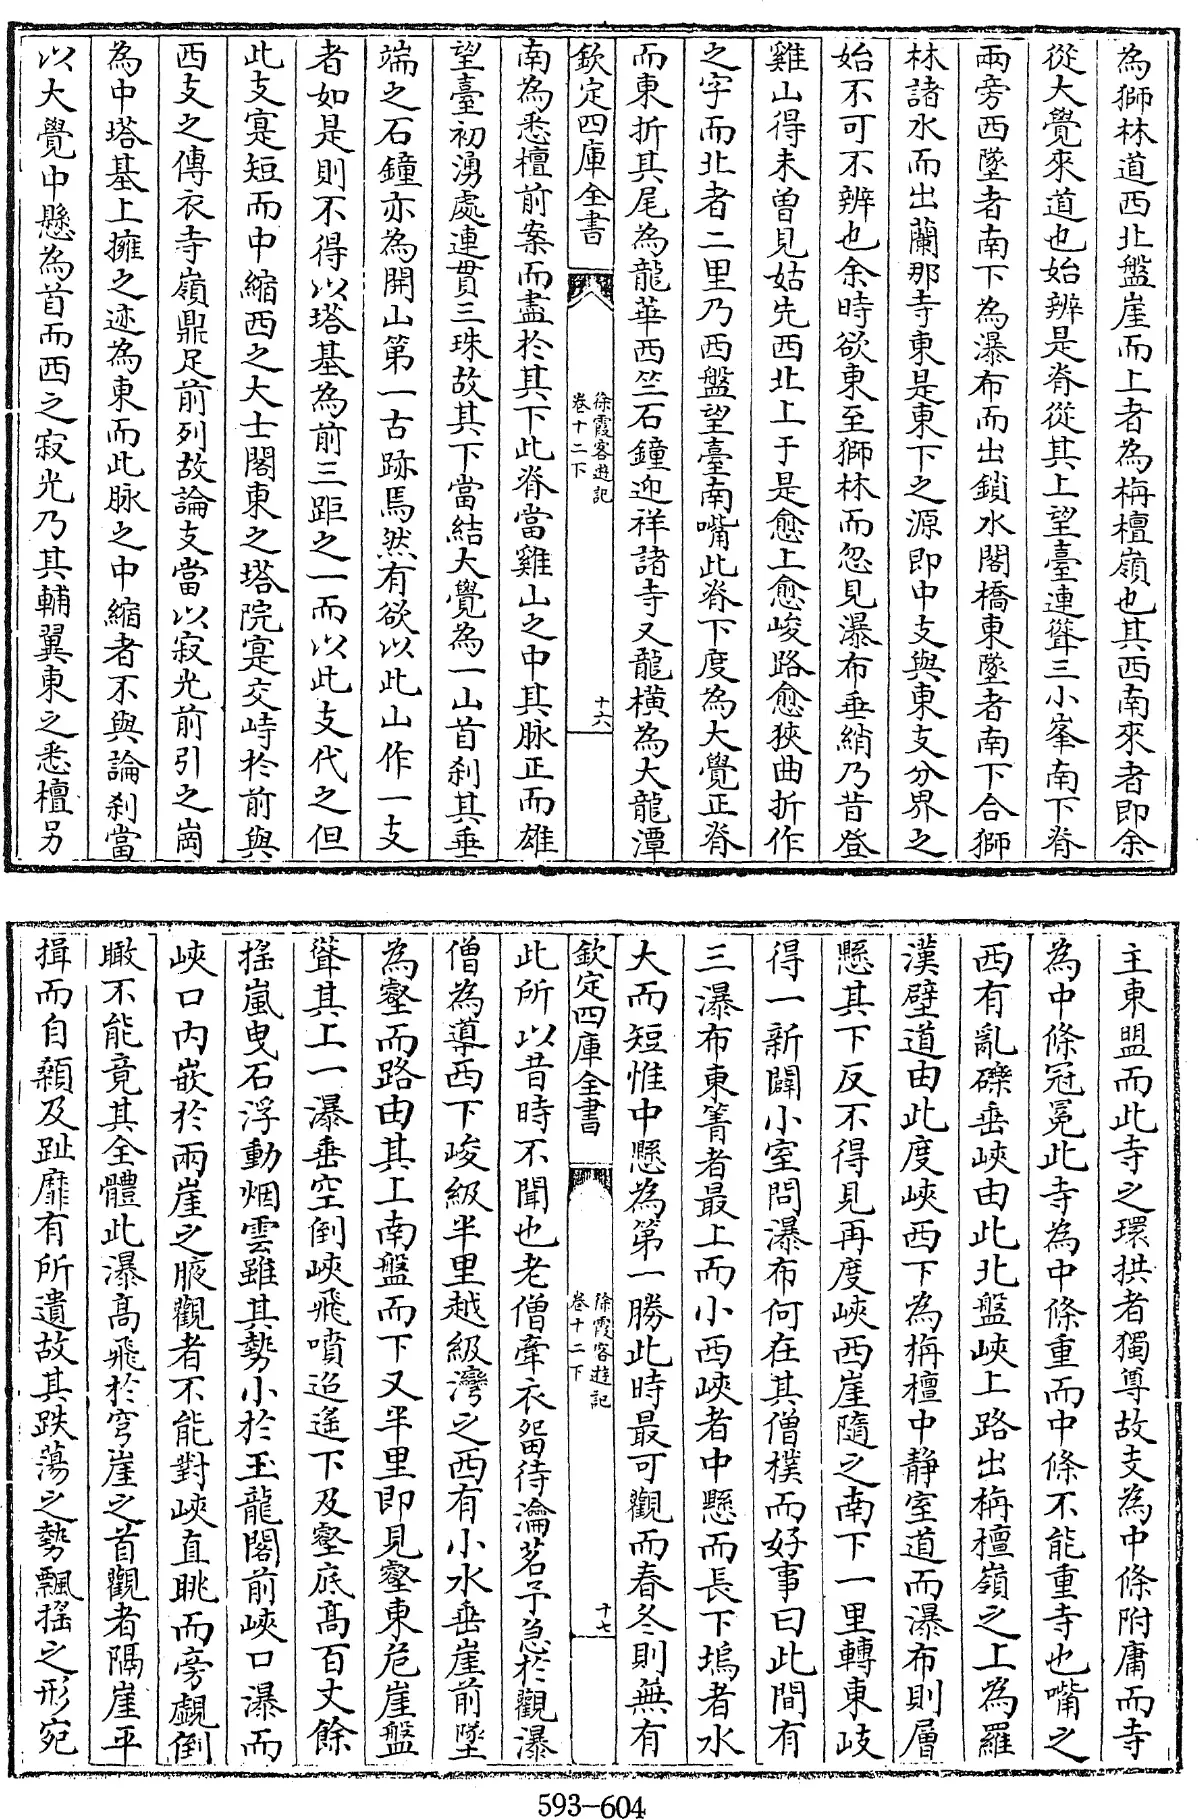 為獅林道西北盤崖而上者為栴檀嶺也其西南來者即余
從大覺來道也始辨是脊從其上望臺連聳三小峯南下脊
兩旁西墜者南下為瀑布而出鎖水閣橋東墜者南下合獅
林諸水而出蘭那寺東是東下之源即中支與東支分界之
始不可不辨也余時欲東至獅林而忽見瀑布垂綃乃昔登
雞山得未曾見姑先西北上于是愈上愈峻路愈狹曲折作
之字而北者二里乃西盤望臺南嘴此脊下度為大覺正脊
而東折其尾為龍華西竺石鐘迎祥諸寺又龍橫為大龍潭
欽定四庫全書
徐霞客遊記
卷十二下
十六
南為悉檀前案而盡於其下此脊當雞山之中其脉正而雄
望臺初湧處連貫三珠故其下當結大覺為一山首刹其垂
端之石鐘亦為開山第一古跡焉然有欲以此山作一支
者如是則不得以塔基為前三距之一而以此支代之但
此支寔短而中縮西之大士閣東之塔院寔交峙於前與
西支之傳衣寺嶺鼎足前列故論支當以寂光前引之崗
為中塔基上擁之迹為東而此脉之中縮者不與論刹當
以大覺中懸為首而西之寂光乃其輔翼東之悉檀另
主東盟而此寺之環拱者獨尊故支為中條附庸而寺
為中條冠冕此寺為中條重而中條不能重寺也嘴之
西有亂礫垂峽由此北盤峽上路出栴檀嶺之上為羅
漢壁道由此度峽西下為栴檀中靜室道而瀑布則層
懸其下反不得見再度峽西崖隨之南下一里轉東岐
得一新闢小室問瀑布何在其僧樸而好事曰此間有
三瀑布東箐者最上而小西峽者中懸而長下塢者水
大而短惟中懸為第一勝此時最可觀而春冬則無有
欽定四庫全書
徐霞客遊記
卷十二下
十七
此所以昔時不聞也老僧牽衣留待瀹茗予急於觀瀑
僧為導西下峻級半里越級灣之西有小水垂崖前墜
為壑而路由其上南盤而下又半里即見壑東危崖盤
聳其上一瀑垂空倒峽飛噴迢遥下及壑底高百丈餘
搖嵐曳石浮動烟雲雖其勢小於玉龍閣前峽口瀑而
峽口内嵌於兩崖之腋觀者不能對峽直眺而旁覷倒
瞰不能竟其全體此瀑高飛於穹崖之首觀者隔崖平
揖而自顙及趾靡有所遺故其跌蕩之勢飄搖之形宛
593-604